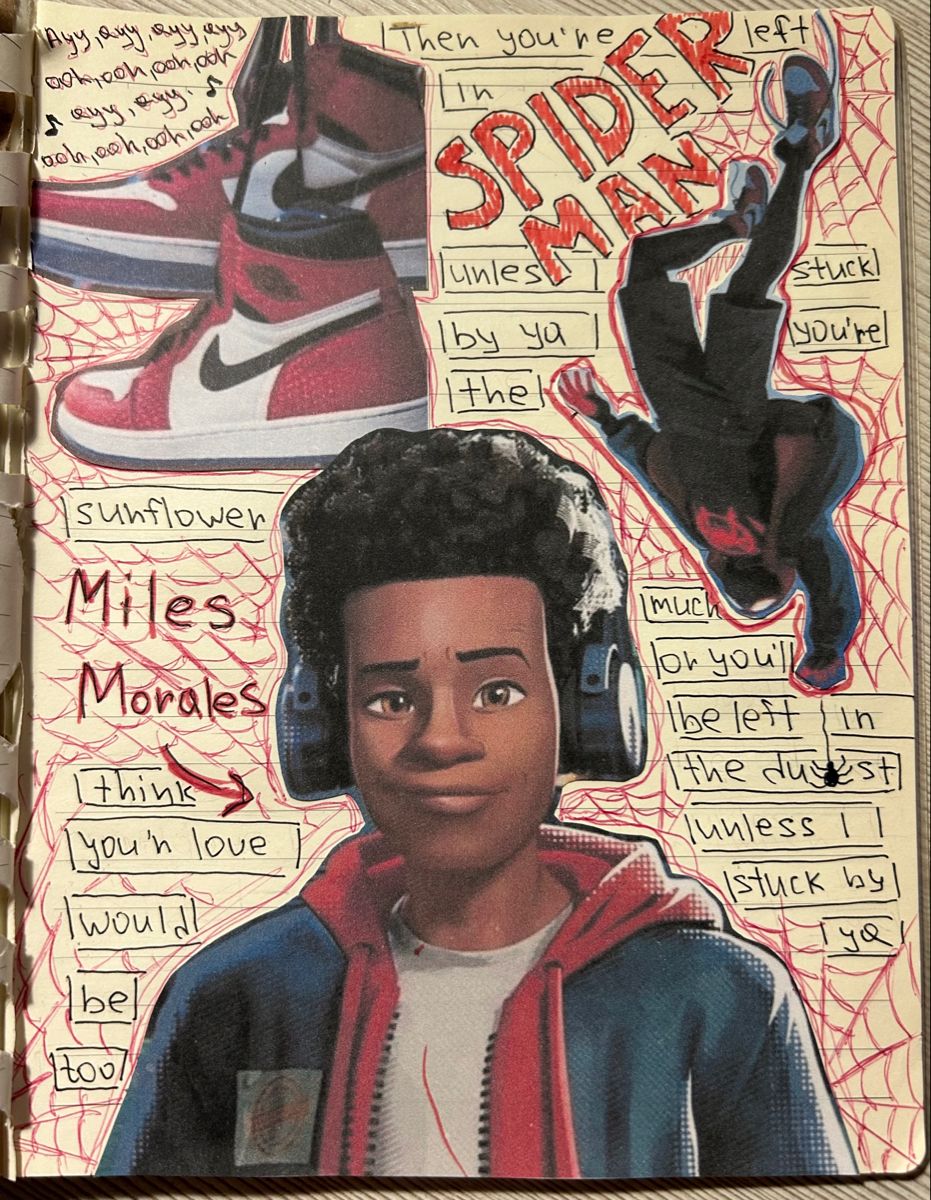 Ayy, ayy, ayy, ayy
ooh, ooh, ooh, ooh
ayy, ayy.
ooh, ooh, ooh, ooh
Then you're left
in
SPIDER
MAN
unles I stuck
by ya you're
the
sunflower
Miles
Morales
I think
you'r love
would
be
too
much
or you'll
be left in
the dust
unless I
stuck by
ya